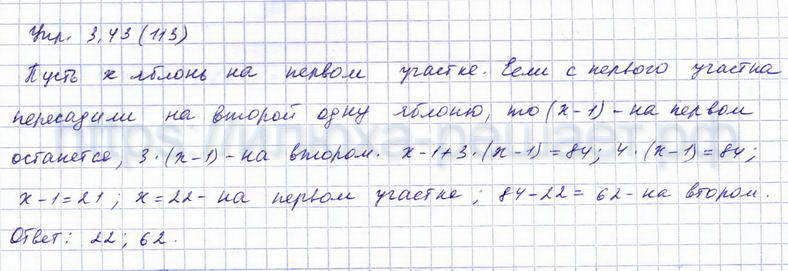 Упр. 3,43 (113)
Пусть x яблонь на первом участке. Если с первого участка
пересадили на второй одну яблоню, то (x-1) - на первом
останется, 3·(x-1) - на втором. x-1+3·(x-1)=84; 4·(x-1)=84;
x-1=21; x=22- на первом участке; 84-22=62- на втором.
Ответ: 22; 62.